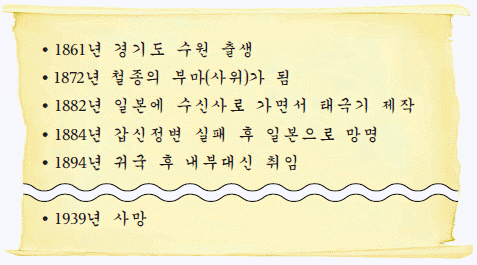 • 1861년 경기도 수원 출생
• 1872년 철종의 부마(사위)가 됨
• 1882년 일본에 수신사로 가면서 태극기 제작
• 1884년 갑신정변 실패 후 일본으로 망명
• 1894년 귀국 후 내부대신 취임
• 1939년 사망